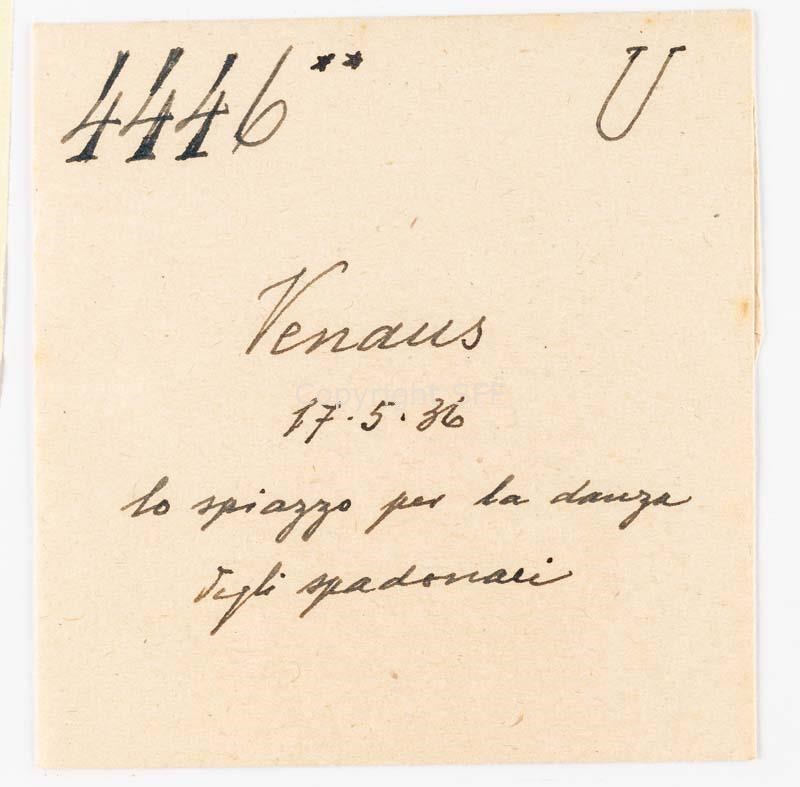 4446** U
Venaus
Copyright SPF
17.5.36
lo spiazzo per la danza
degli spadonari